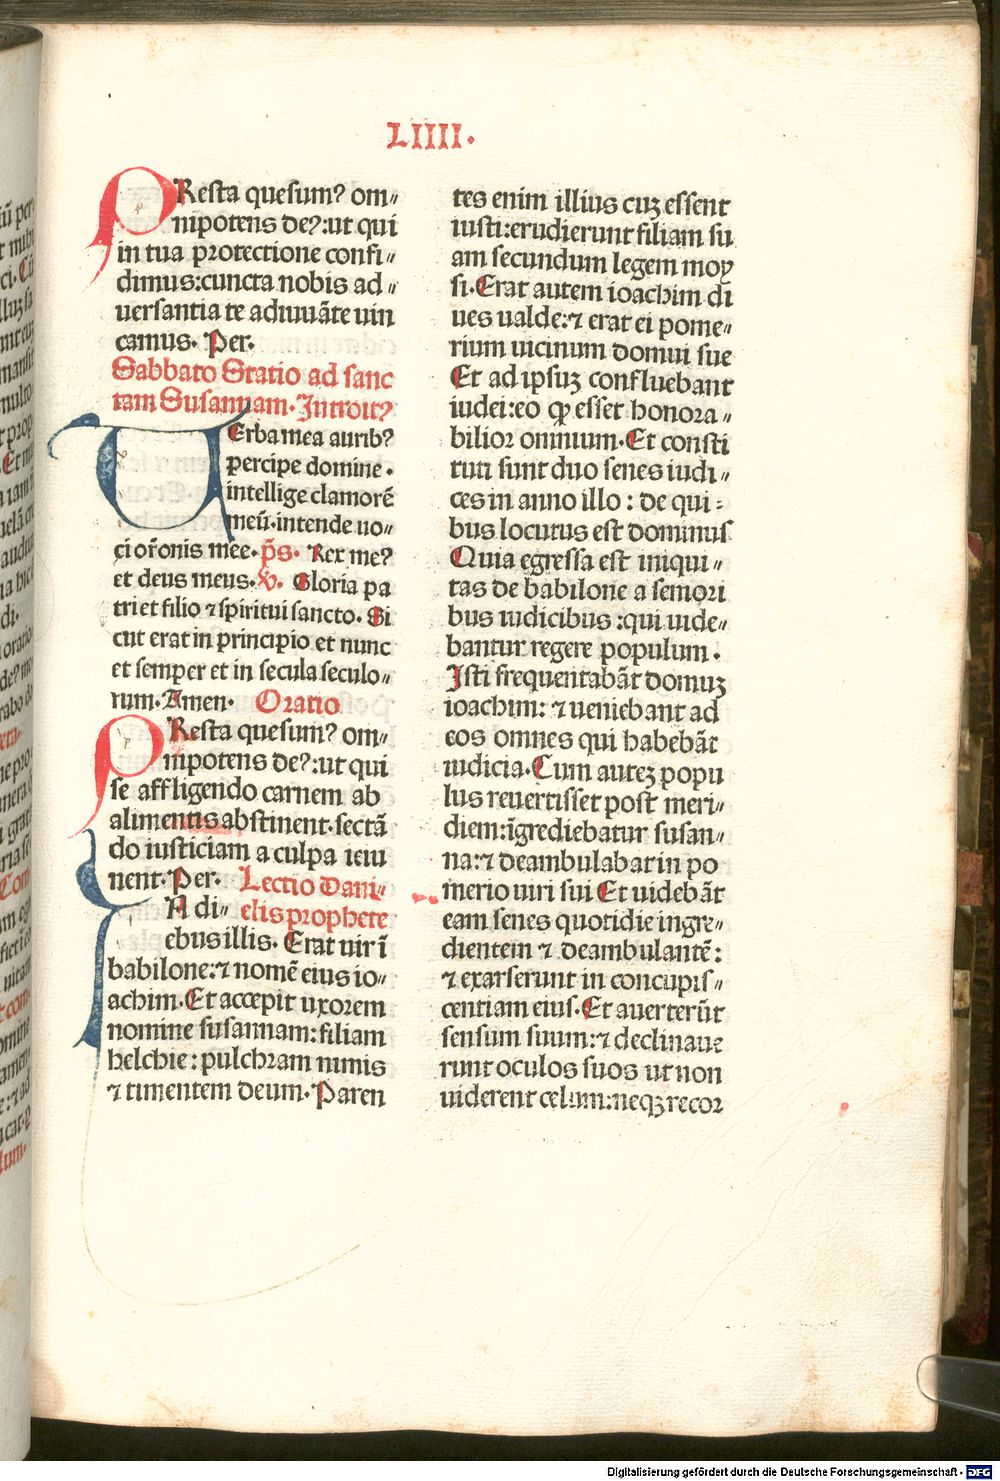 LIIII.
PResta quesumꝰ om-
nipotens deꝰ: ut qui
in tua protectione confi-
dimus: cuncta nobis ad-
uersantia te adiuuāte uin
camus. Per.
Sabbato Statio ad sanc
tam Susannam. Introitꝰ
UErba mea auribꝰ
percipe domine.
intellige clamorē
meū. intende uo-
ci or̄onis mee. p̄s. Rex meꝰ
et deus meus. V. Gloria pa
tri et filio ⁊ spiritui sancto. Si
cut erat in principio et nunc
et semper et in secula seculo-
rum. Amen. Oratio
PResta quesumꝰ om-
nipotens deꝰ: ut qui
se affligendo carnem ab
alimentis abstinent. sectā
do iusticiam a culpa ieiu
nent. Per. Lectio Dani-
elis prophete
IN di-
ebus illis. Erat uir ī
babilone: ⁊ nomē eius io-
achim. Et accepit uxorem
nomine susannam: filiam
helchie: pulchram nimis
⁊ timentem deum. Paren
tes enim illius cuꝫ essent
iusti: erudierunt filiam su
am secundum legem moy
si. Erat autem ioachim di
ues ualde: ⁊ erat ei pome-
rium uicinum domui sue
Et ad ipsuꝫ confluebant
iudei: eo ꝙ esset honora-
bilior omnium. Et consti
tuti sunt duo senes iudi-
ces in anno illo: de qui-
bus locutus est dominus
Quia egressa est iniqui-
tas de babilone a seniori
bus iudicibus: qui uide-
bantur regere populum.
Isti frequentabāt domuꝫ
ioachim: ⁊ ueniebant ad
eos omnes qui habebāt
iudicia. Cum auteꝫ popu
lus reuertisset post meri-
diem: īgrediebatur susan-
na: ⁊ deambulabat in po
merio uiri sui Et uidebāt
eam senes quotidie ingre-
dientem ⁊ deambulantē:
⁊ exarserunt in concupis-
centiam eius. Et auerterūt
sensum suum: ⁊ declinaue
runt oculos suos ut non
uiderent celum: neqꝫ recor
Digitalisierung gefördert durch die Deutsche Forschungsgemeinschaft - DFG